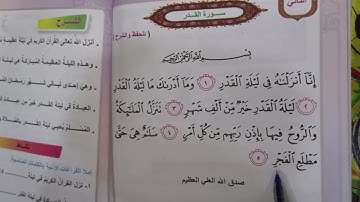 الثاني
سورة القدر
(للحفظ والشرح)
بسم الله الرحمن الرحيم
إِنَّا أَنزَلْنَاهُ فِي لَيْلَةِ الْقَدْرِ ١ وَمَا أَدْرَاكَ مَا لَيْلَةُ الْقَدْرِ
٢ لَيْلَةُ الْقَدْرِ خَيْرٌ مِّنْ أَلْفِ شَهْرٍ ٣ تَنَزَّلُ الْمَلَائِكَةُ
وَالرُّوحُ فِيهَا بِإِذْنِ رَبِّهِم مِّن كُلِّ أَمْرٍ ٤ سَلَامٌ هِيَ حَتَّىٰ
مَطْلَعِ الْفَجْرِ ٥
صدق الله العلي العظيم
الشرح
أنزل الله تعالى القرآن الكريم في ليلة
وهذه الليلة
وهي إحدى ليالي شهر
العبادة في ليلة القدر خير من
نشاط
١- نزل القرآن الكريم في ليلة